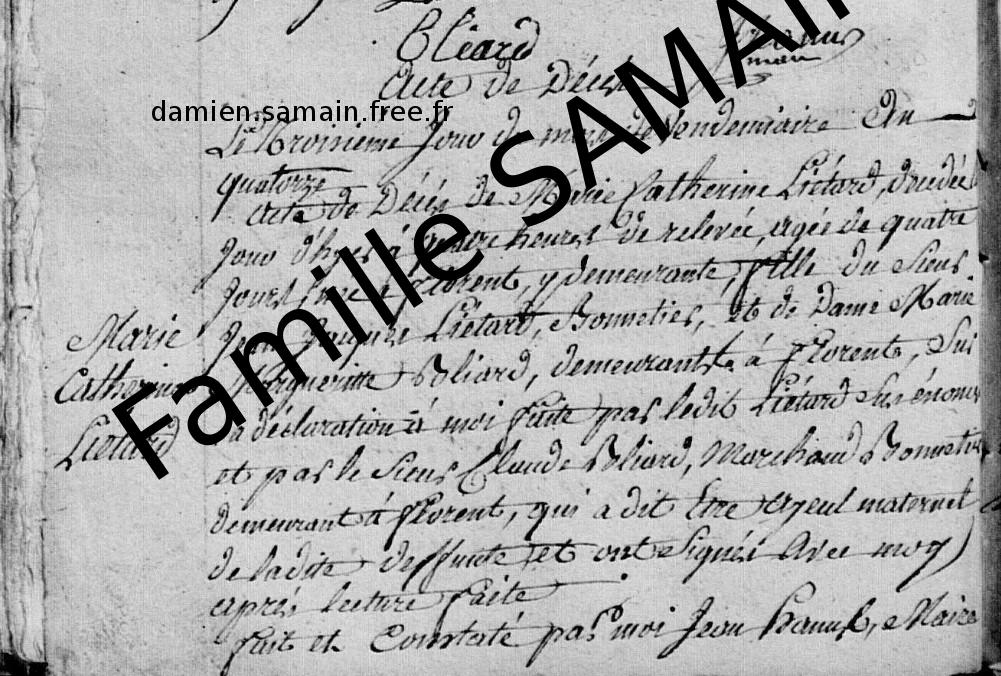 Bliard
Acte de Décès
damien.samain.free.fr
Le troisieme Jour du mois de Vendemiaire An
quatorze
Acte de Décès de Marie Catherine Liétard, décédée
Jour d'hyer à heures de relevée, agée de quatre
Jours florent, y demeurante, fille du Sieur
Jean Liétard, Bonnetier, et de Dame Marie
Margueritte Bliard, demeurants à florent, Sur
la déclaration à moi faite par ledit Liétard Susénommé
et par le Sieur Claude Bliard, Marchand Bonnetier,
demeurant à florent, qui a dit Etre ayeul maternel
de ladite deffunte et ont Signés Avec moy
après lecture faite
fait et Constaté par moi Jean Maire
Marie
Catherine
Liétard
Famille SAMAIN